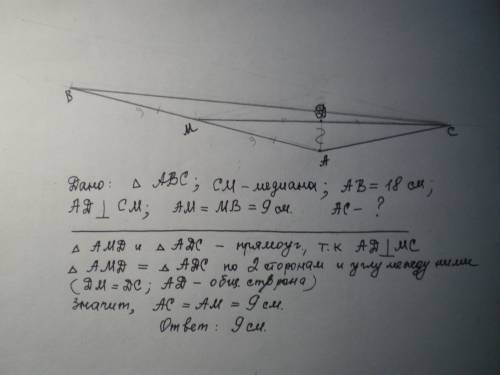 B
9
M
D
C
9
A
Дано: △ ABC; CM - медиана; AB = 18 см;
AD ⊥ CM; AM = MB = 9 см. AC - ?
△ AMD и △ ADC - прямоуг, т.к AD ⊥ MC
△ AMD = △ ADC по 2 сторонам и углу между ними
(DM = DC; AD - общ сторона)
Значит, AC = AM = 9 см.
Ответ: 9 см.